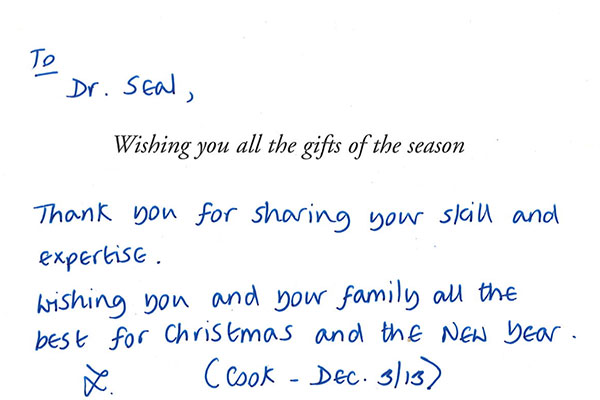 To
Dr. Seal,
Wishing you all the gifts of the season
Thank you for sharing your skill and
expertise.
Wishing you and your family all the
best for Christmas and the New Year.
(Cook - Dec. 3/13)